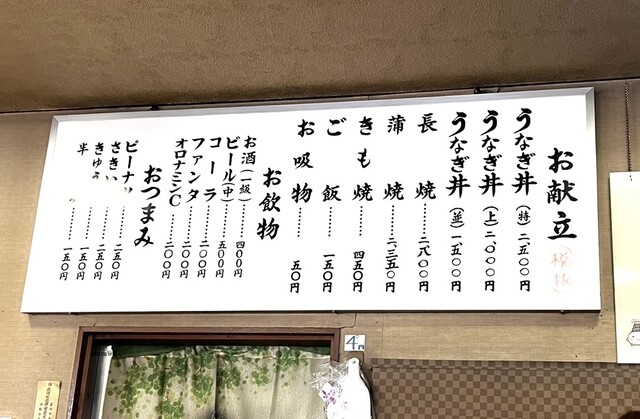 お献立
(税抜)
うなぎ丼(特)二、五〇〇円
うなぎ丼(上)二、〇〇〇円
うなぎ丼(並)一、五〇〇円
長焼……二、八〇〇円
蒲焼……二、三五〇円
きも焼……四五〇円
ご飯……一五〇円
お吸物……五〇円
お飲物
お酒(一級)……四〇〇円
ビール(中)……五〇〇円
コーラ……二〇〇円
ファンタ……二〇〇円
オロナミンC……二〇〇円
おつまみ
ピーナッ……二五〇円
さきい……二五〇円
きゅう……一五〇円
半……一五〇円